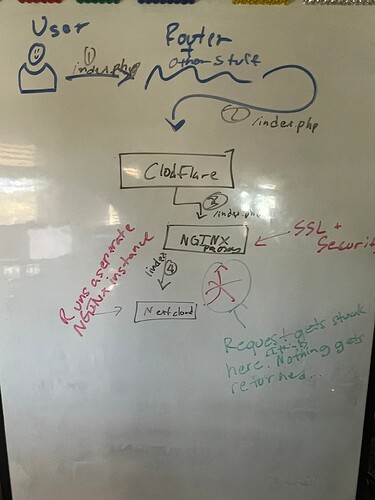 User
Router
+
other stuff
①
index.php
②
/index.php
Clodflare
③
/index.php
NGINX
SSL +
Securit
Runs a seperate
NGINX instance
/index
④
Nextcloud
Request gets stuck
here. Nothing gets
returned...